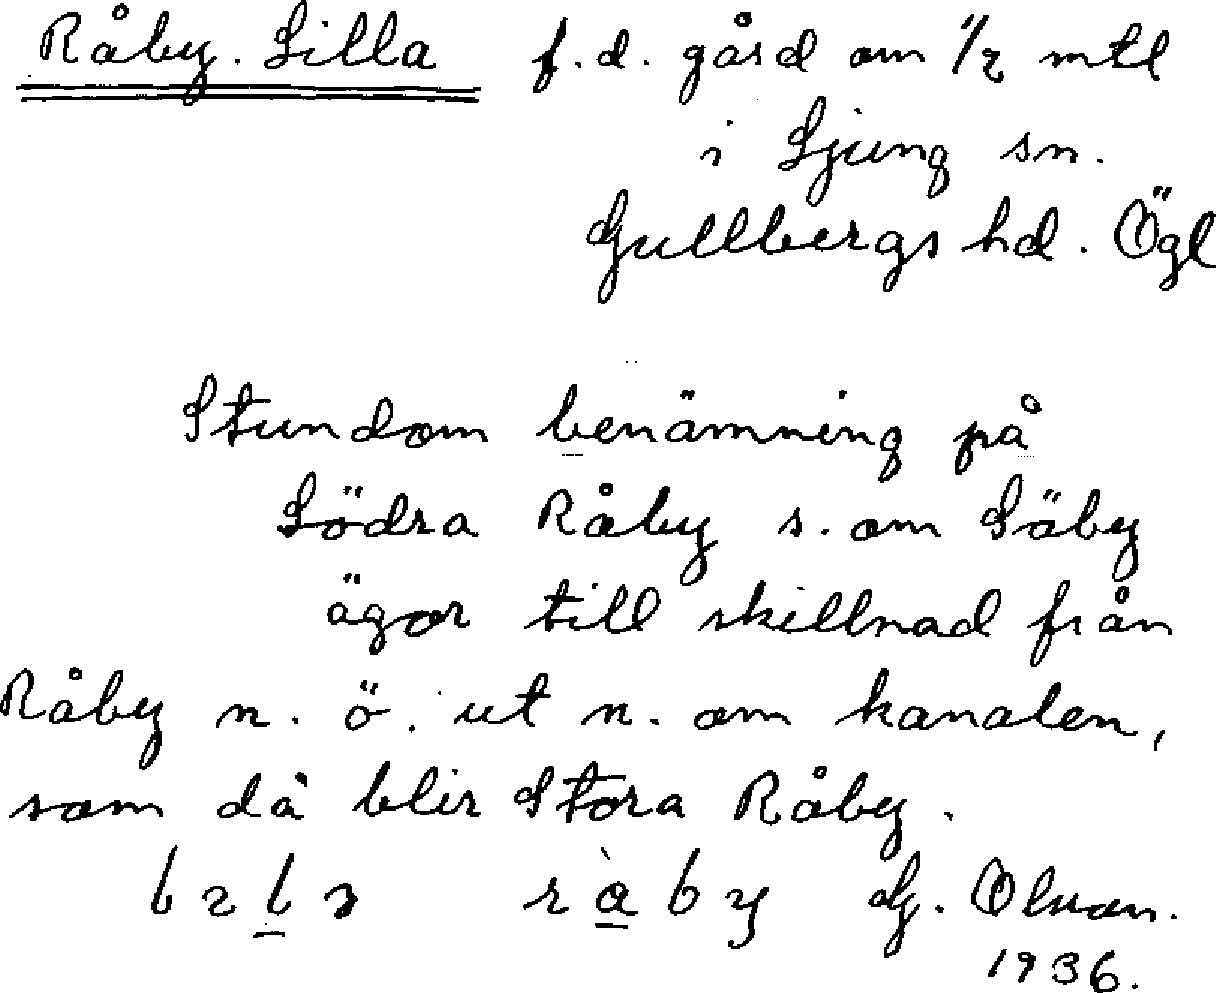 Råby. Lilla f.d. gård om 1/2 mtl
i Ljung sn.
Gullbergs hd. Ögl
Stundom benämning på
Södra Råby s. om Säby
ägor till skillnad från
Råby n. ö. ut n. om kanalen,
som då blir Stora Råby.
råby G.
1936.